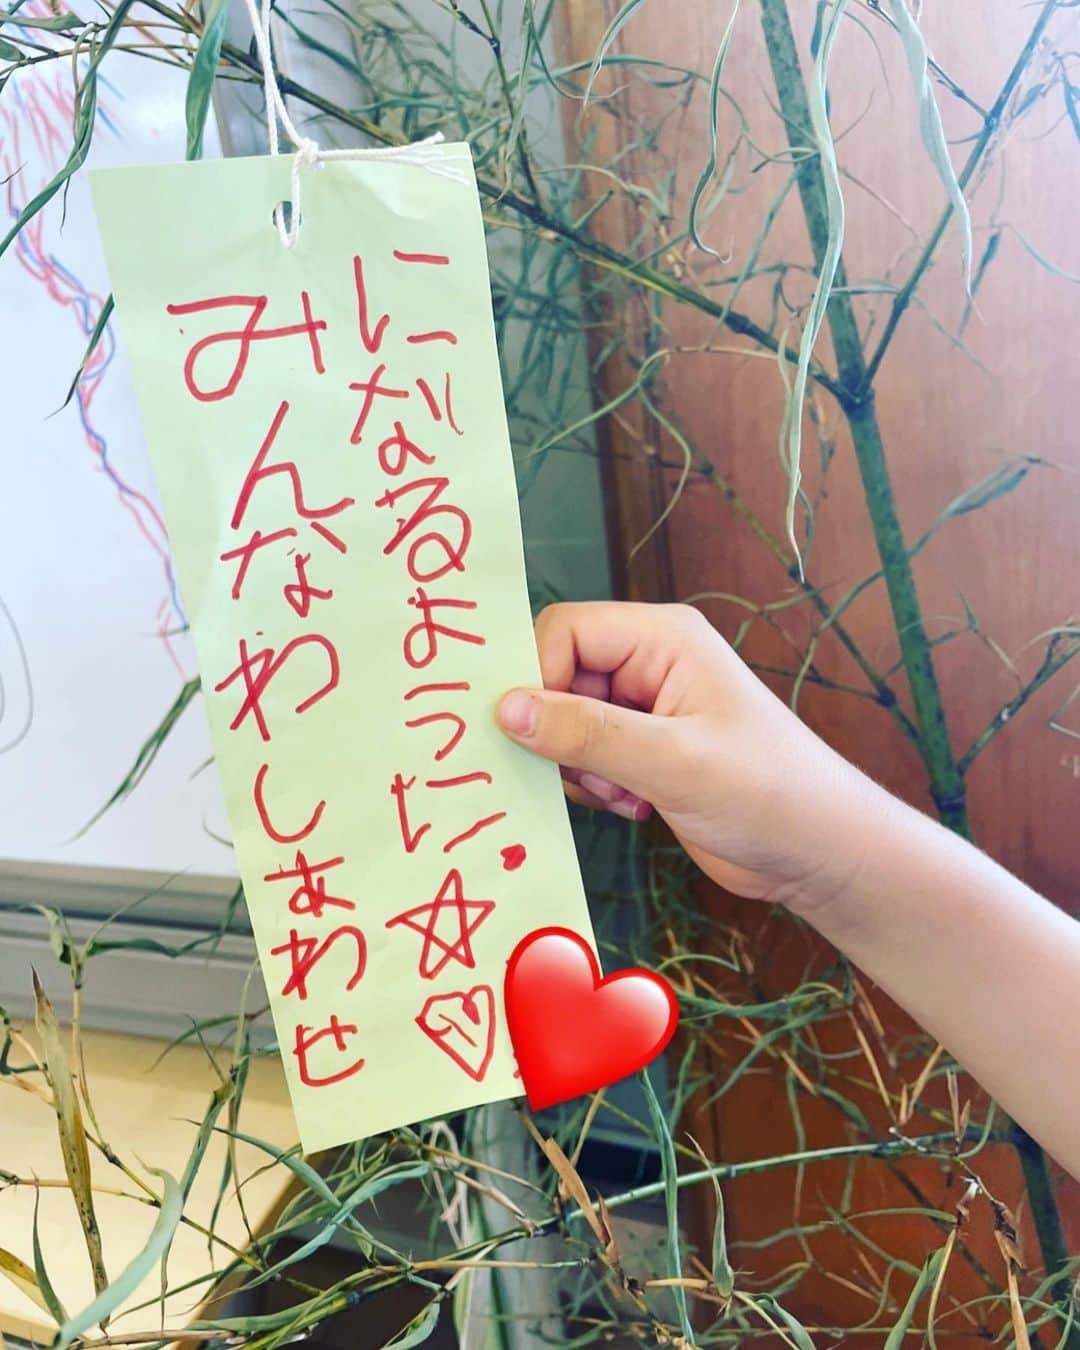 みんなわしあわせ
になるように